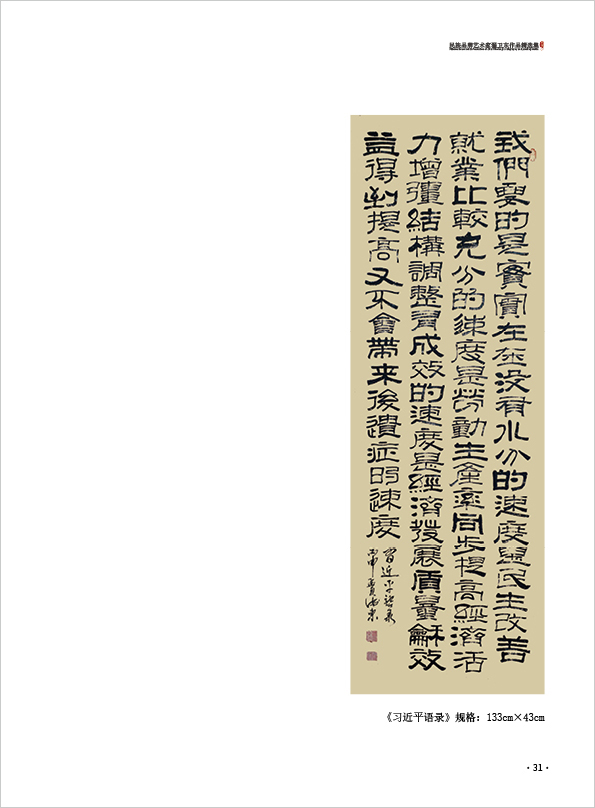 民族品牌艺术家翟卫东作品精选集
我們要的是實實在在没有水分的速度是民生改善
就業比較充分的速度是勞動生產率同步提高經濟活
力增强結構調整有成效的速度是經濟發展質量龢效
益得到提高又不會帶来後遺症的速度
習近平語录
丙申
《习近平语录》规格：133cm×43cm
·31·